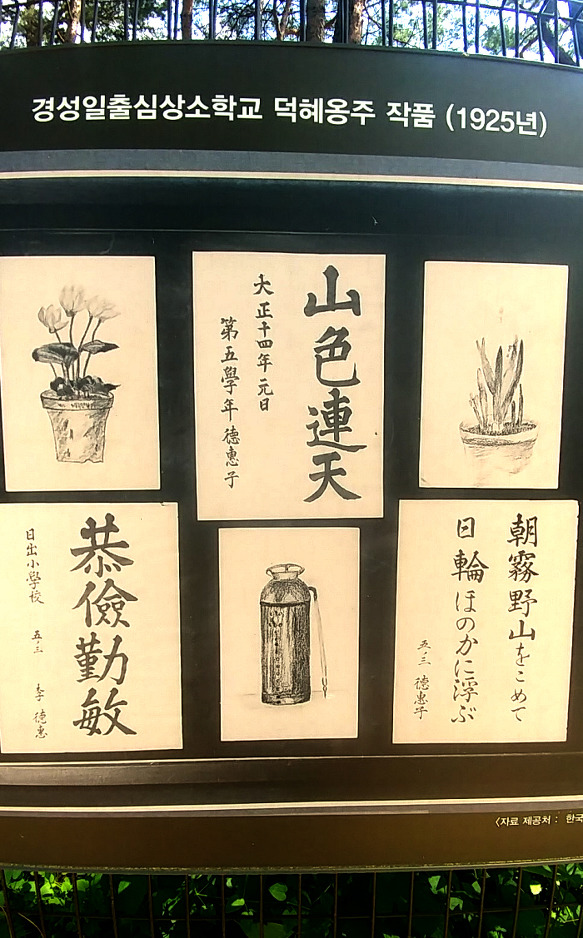 경성일출심상소학교 덕혜옹주 작품 (1925년)
山色連天
大正十四年元日
第五學年 德惠子
恭儉勤敏
日出小學校 五ノ三 李德惠
朝霧野山をこめて
日輪ほのかに浮ぶ
五ノ三 德惠子
〈자료 제공처 : 한국